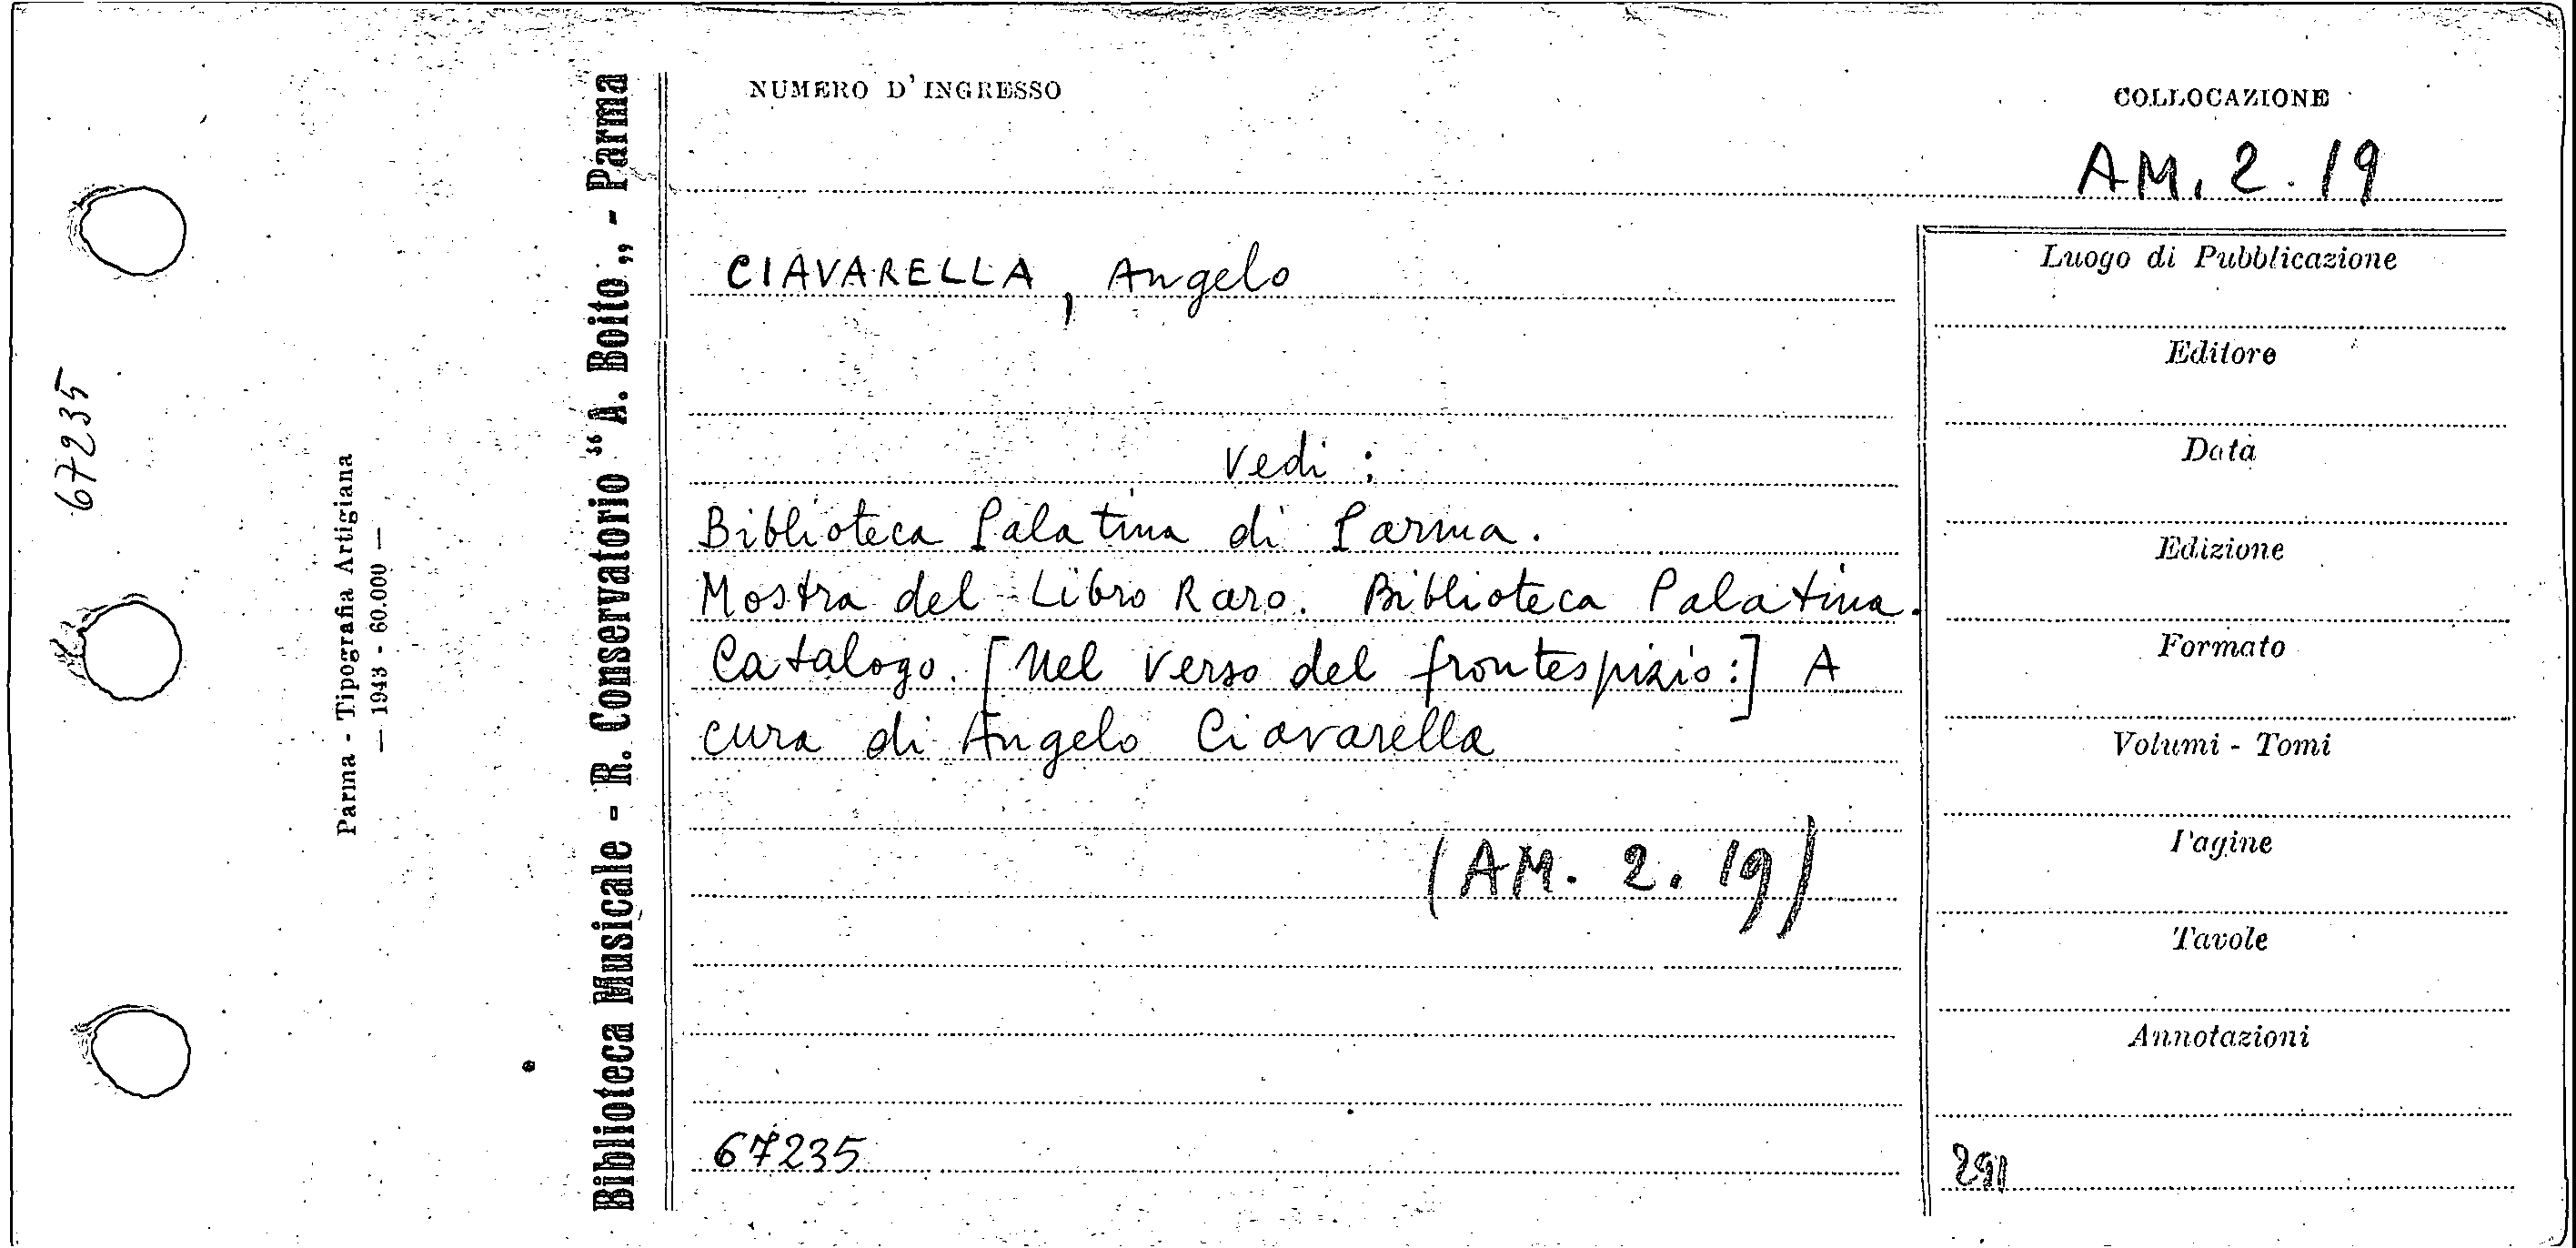 67235
Parma - Tipografia Artigiana
— 1943 - 60.000 —
Biblioteca Musicale - R. Conservatorio “A. Boito„ - Parma
NUMERO D'INGRESSO
COLLOCAZIONE
AM. 2. 19
CIAVARELLA, Angelo
vedi:
Biblioteca Palatina di Parma.
Mostra del Libro Raro. Biblioteca Palatina.
Catalogo. [Nel verso del frontespizio:] A
cura di Angelo Ciavarella
(AM. 2. 19)
67235
Luogo di Pubblicazione
Editore
Data
Edizione
Formato
Volumi - Tomi
Pagine
Tavole
Annotazioni
291